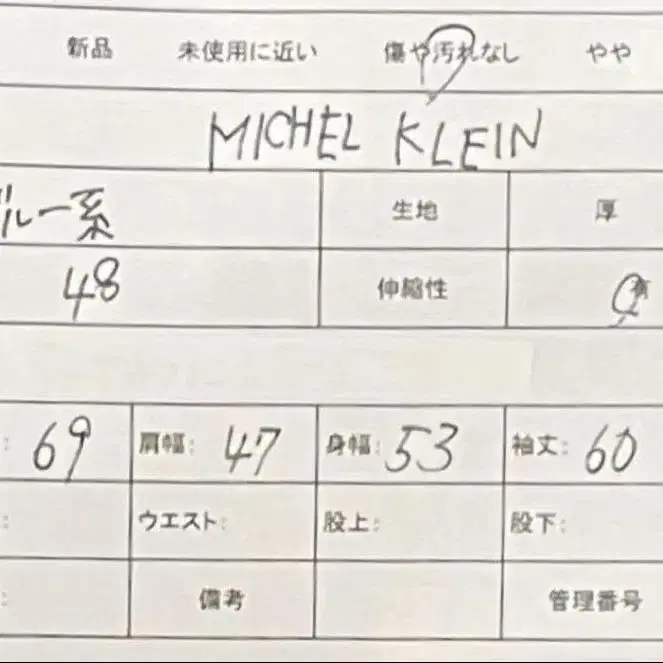 新品 未使用に近い 傷や汚れなし やや
MICHEL KLEIN
ブルー系 生地 厚
48 伸縮性 有
: 69 肩幅: 47 身幅: 53 袖丈: 60
: ウエスト: 股上: 股下:
: 備考 管理番号